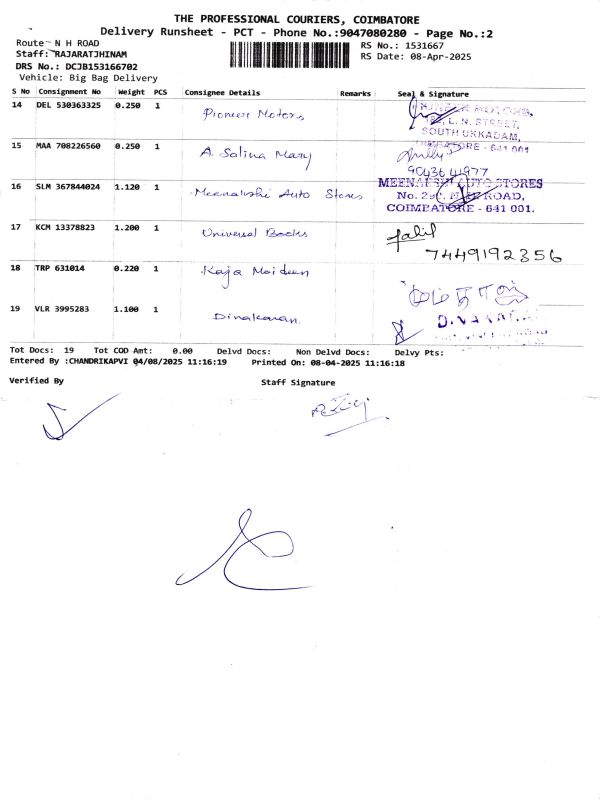 THE PROFESSIONAL COURIERS, COIMBATORE
Delivery Runsheet - PCT - Phone No.:9047080280 - Page No.:2
Route N H ROAD
RS No.: 1531667
Staff: RAJARATJHINAM
RS Date: 08-Apr-2025
DRS No.: DCJB153166702
Vehicle: Big Bag Delivery
S No Consignment No Weight PCS Consignee Details Remarks Seal & Signature
14 DEL 530363325 0.250 1 Pioneer Motors
L. N. STREET,
SOUTH UKKADAM,
COIMBATORE - 641 001
15 MAA 708226560 0.250 1 A. Salina Mary
9043641977
16 SLM 367844024 1.120 1 Meenakshi Auto Stores MEENAKSHI AUTO STORES
ROAD,
COIMBATORE - 641 001.
17 KCM 13378823 1.200 1 Universal Books
7449192356
18 TRP 631014 0.220 1 Kaja Moideen
19 VLR 3995283 1.100 1 Dinakaran
Tot Docs: 19 Tot COD Amt: 0.00 Delvd Docs: Non Delvd Docs: Delvy Pts:
Entered By :CHANDRIKAPVI 04/08/2025 11:16:19 Printed On: 08-04-2025 11:16:18
Verified By Staff Signature